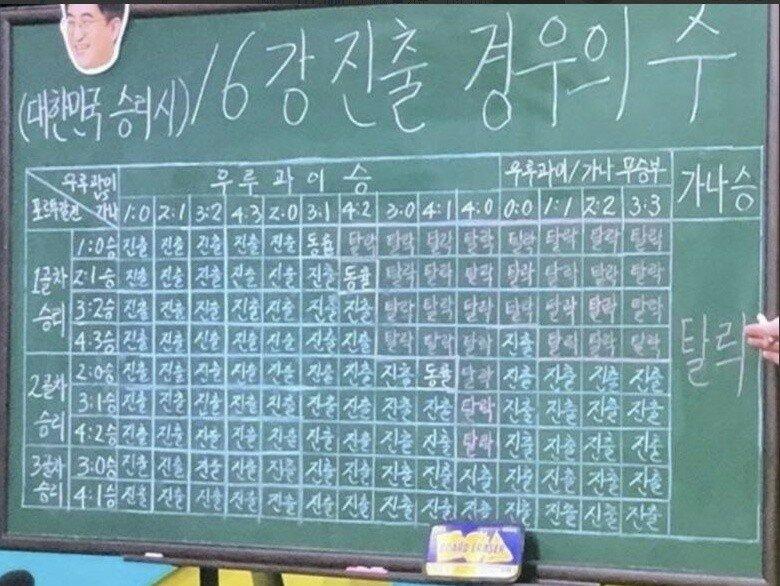 (대한민국 승리시) 16강 진출 경우의 수
우루과이 가나 포르투갈전 우루과이 승 우루과이/가나 무승부 가나 승
1:0 2:1 3:2 4:3 2:0 3:1 4:2 3:0 4:1 4:0 0:0 1:1 2:2 3:3
1골차 승리
1:0승 진출 진출 진출 진출 진출 동률 탈락 탈락 탈락 탈락 탈락 탈락 탈락 탈락
2:1승 진출 진출 진출 진출 진출 진출 동률 탈락 탈락 탈락 탈락 탈락 탈락 탈락
3:2승 진출 진출 진출 진출 진출 진출 진출 탈락 탈락 탈락 탈락 탈락 탈락 탈락
4:3승 진출 진출 진출 진출 진출 진출 진출 탈락 탈락 탈락 진출 탈락 탈락 탈락
2골차 승리
2:0승 진출 진출 진출 진출 진출 진출 진출 진출 동률 탈락 진출 진출 진출 진출
3:1승 진출 진출 진출 진출 진출 진출 진출 진출 진출 탈락 진출 진출 진출 진출
4:2승 진출 진출 진출 진출 진출 진출 진출 진출 진출 탈락 진출 진출 진출 진출
3골차 승리
3:0승 진출 진출 진출 진출 진출 진출 진출 진출 진출 진출 진출 진출 진출 진출
4:1승 진출 진출 진출 진출 진출 진출 진출 진출 진출 진출 진출 진출 진출 진출
탈락
BOARD ERASER